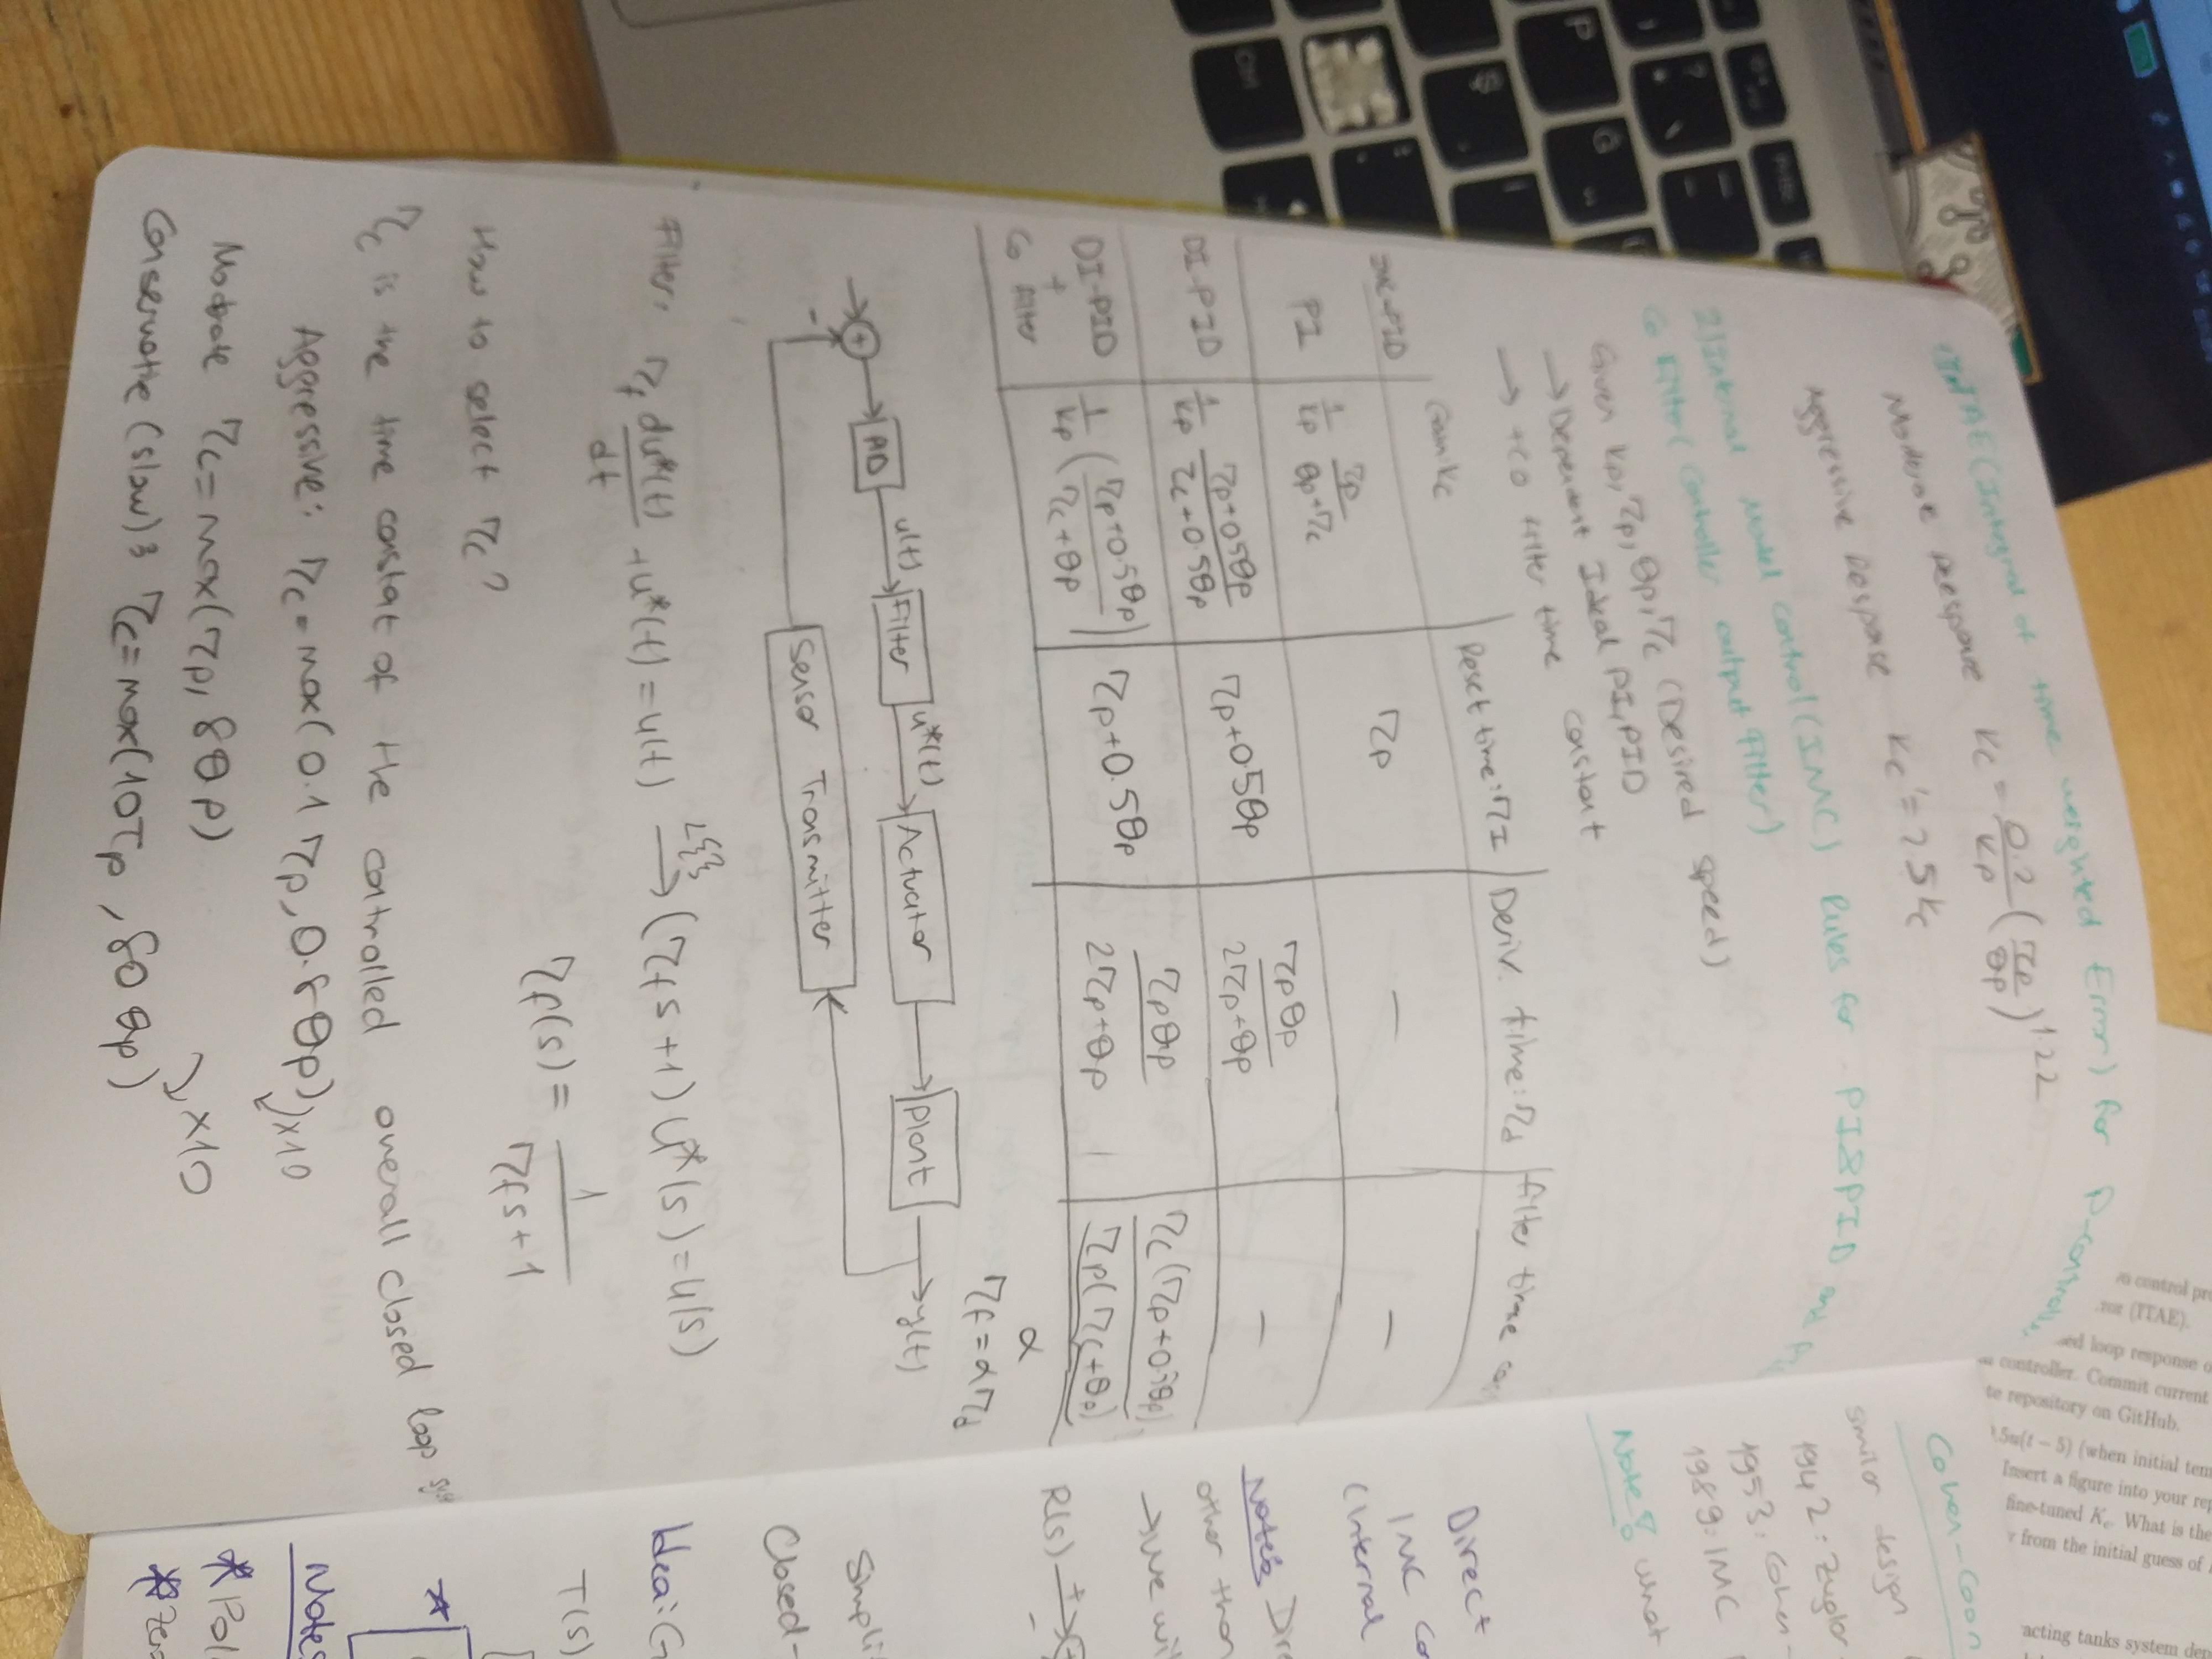 ITAE (Integral of time weighted Error) for P-controller
Moderate Response Kc = 0.2/Kp (τp/θp)^1.22
Aggressive Response Kc' = 2.5Kc
2) Internal Model Control (IMC) Rules for PI&PID and
↳ Filter (Controller output Filter)
Given Kp, τp, θp, τc (Desired speed)
→ Dependent Ideal PI, PID
→ +CO filter time constant
Gain Kc | Reset time: τI | Deriv. time: τd | filter time
PI | 1/Kp τp/(θp+τc) | τp | - | -
DI-PID | 1/Kp (τp+0.5θp)/(τc+0.5θp) | τp+0.5θp | τpθp/(2τp+θp) | -
DI-PID + Co filter | 1/Kp ((τp+0.5θp)/(τc+θp)) | τp+0.5θp | τpθp/(2τp+θp) | τc(τp+0.5θp)/(τp(τc+θp))
α
τf = ατd
+ - PID u(t) Filter u*(t) Actuator Plant y(t)
Sensor Transmitter
Filter, τf du*(t)/dt + u*(t) = u(t) → (τfs+1)U*(s) = U(s)
τf(s) = 1/(τfs+1)
How to select τc?
τc is the time constat of the controlled overall closed loop
Aggressive: τc = max(0.1τp, 0.8θp) ×10
Modrate τc = max(τp, 8θp)
×10
Conservative (slow): τc = max(10τp, 80θp)
Cohen-Coon
similar design
1942: Zieglor
1953: Cohen-
1989: IMC
Note: what
Direct
IMC Co
(Internal
Note: Dire
other than
→ we wil
R(s) + -
Simpli
Closed-
Idea: G
T(s)
*
Notes
*Pol
*zero
control pr
(ITAE).
loop response o
controller. Commit current
te repository on GitHub.
.5u(t − 5) (when initial tem
Insert a figure into your rep
fine-tuned Kc. What is the
from the initial guess of
acting tanks system dep
P
G
Ctrl